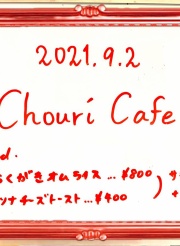 2021.9.2
Chouri Cafe
d.
らくがきオムライス...¥800
ツナチーズトースト...¥400
)
+